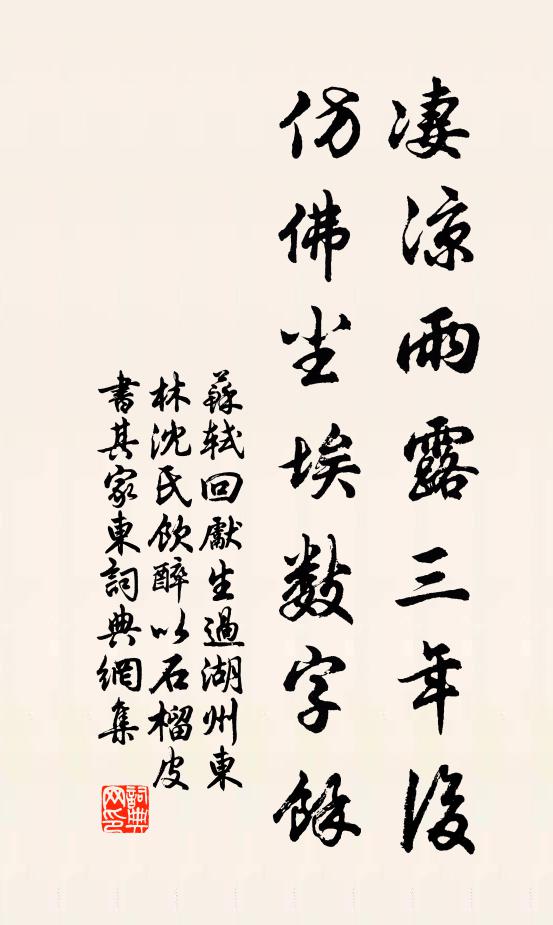 凄涼雨露三年後
仿佛尘埃數字餘
蘇軾回獻生過湖州東
林沈氏飲醉以石榴皮
書其家東詞典網集
詞典网印